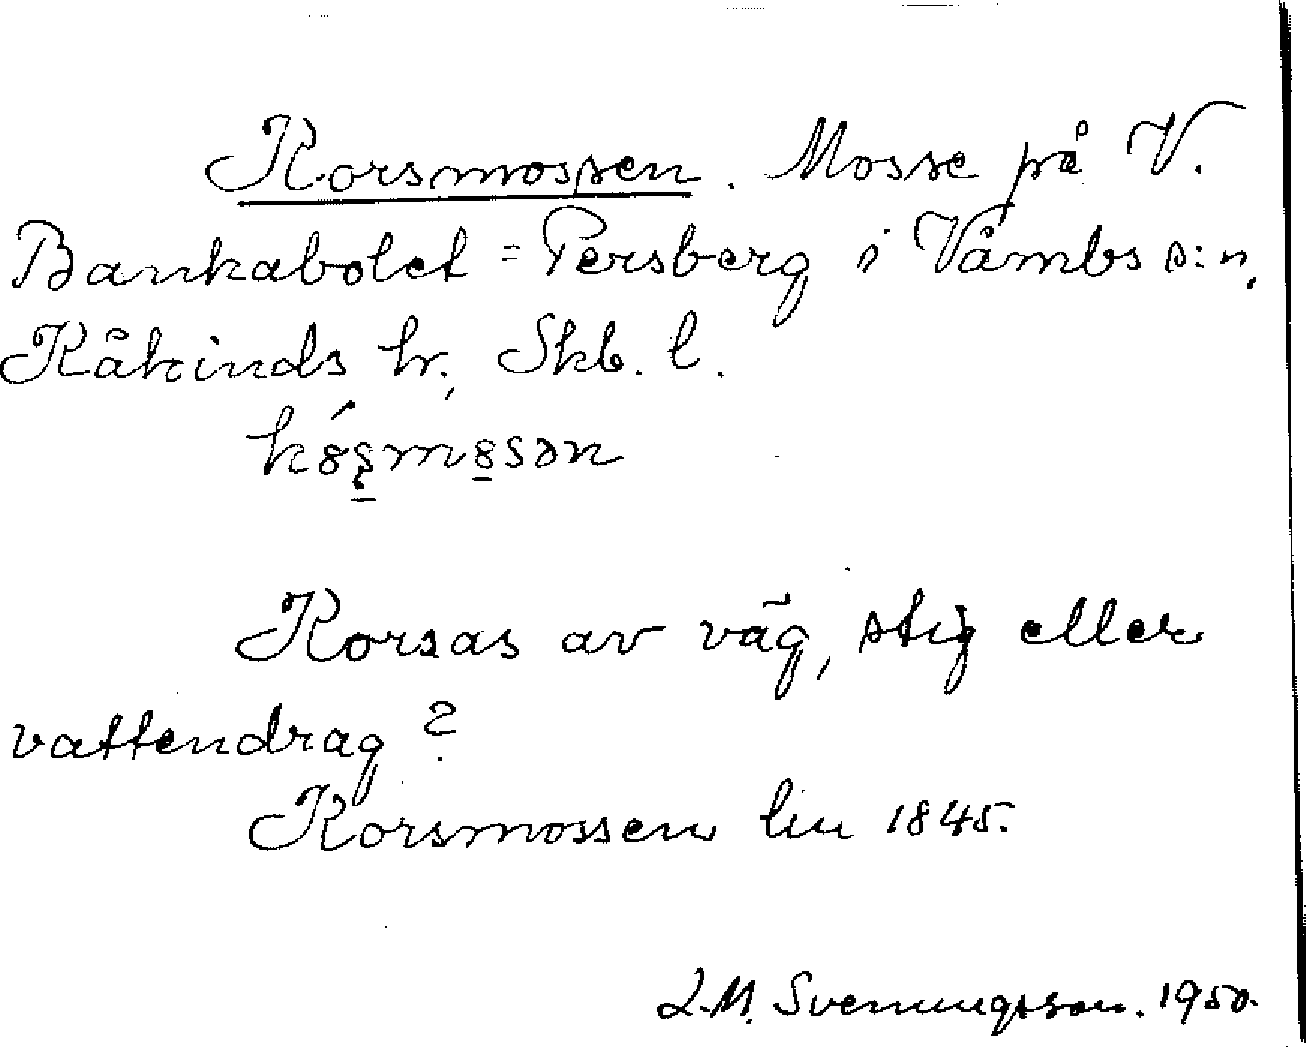 Korsmossen. Mosse på V.
Bankabolet = Persberg i Våmbs s:n,
Kåkinds hr., Skb. l.
Korsas av väg, stig eller
vattendrag?
Korsmossen lm 1845.
L.M. Svenungsson. 1950.